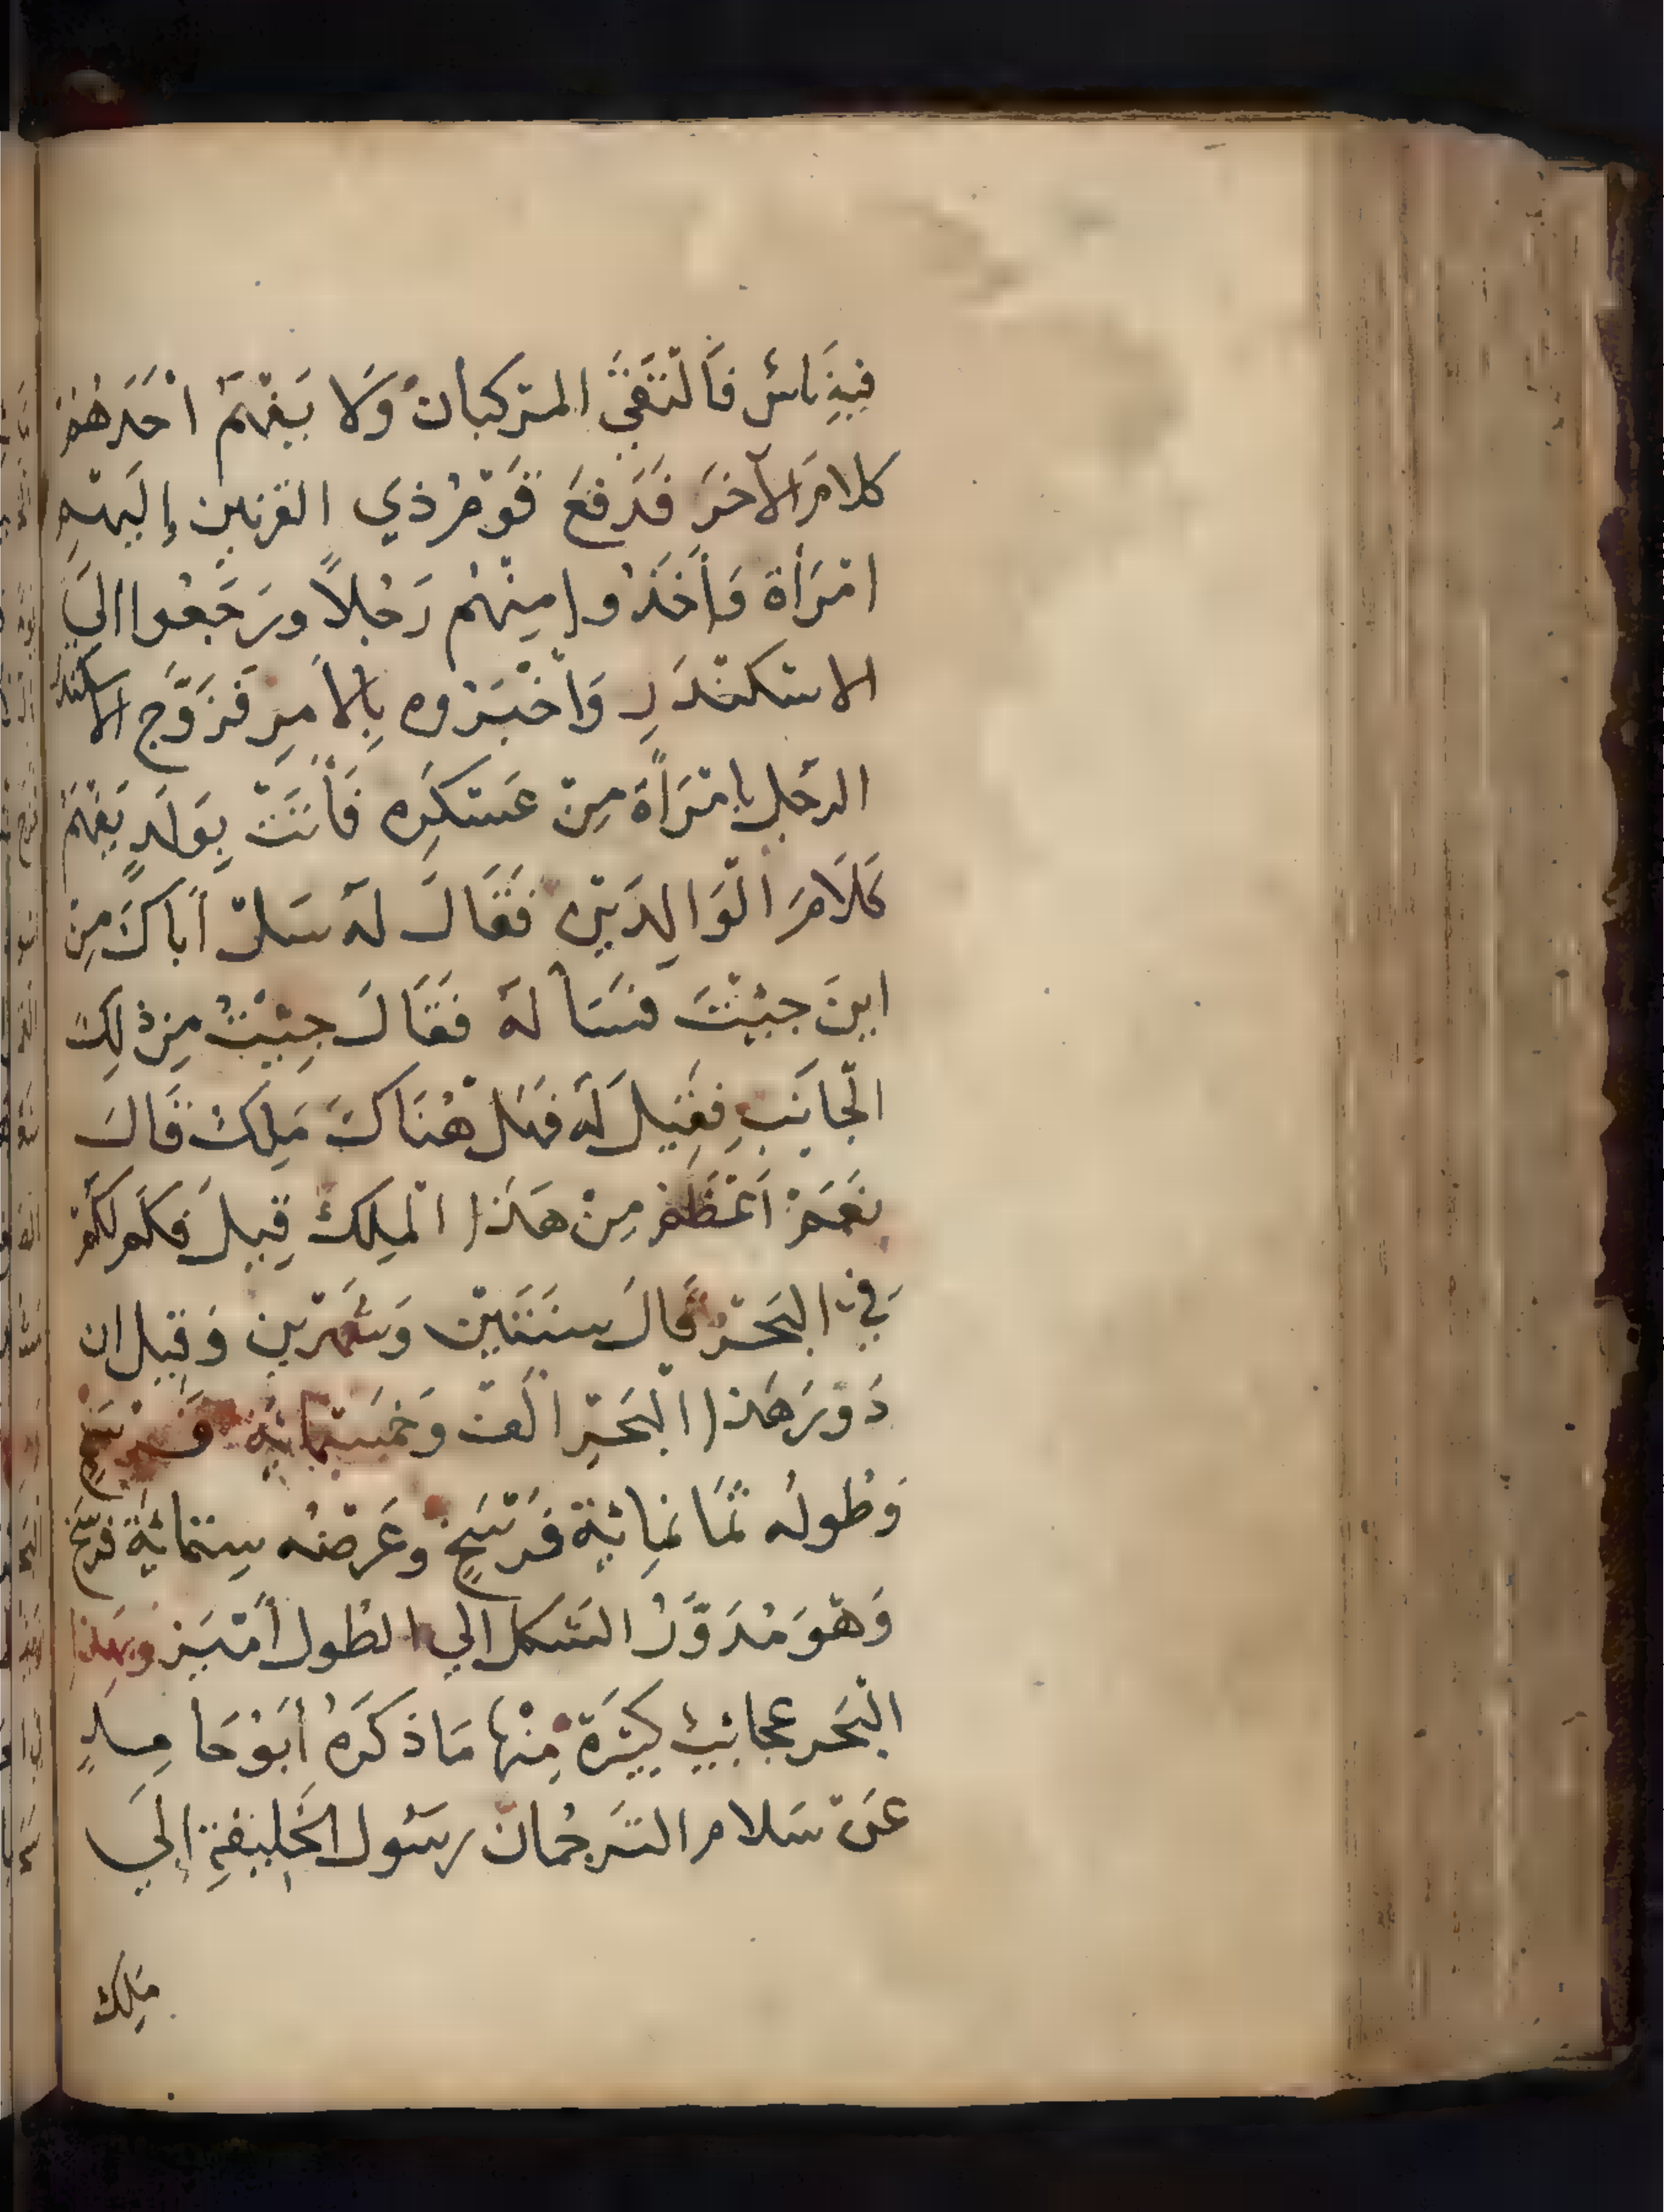 فِيهِ نَاسٌ فَالْتَقَى المركبان وَلَا يَفْهَمُ اَحَدَهُمْ
كلامَ الآخَرَ فَدَفَعَ قَوْمُ ذي القرنين إلَيْهِمِ
امْرَأة وَأَخَذُوا مِنْهُم رَجُلاً ورَجَعُوا الىَ
الاسْكنْدَرِ وَأخْبَرُوه بِالأمرِ فَزَوَّج الاسكندر
الرجُل بامْرَأة مِنْ عَسْكَرِه فَأتَتْ بِوَلَدٍ يَفْهَمُ
كَلَامَ الْوَالِدَيْنِ فَقَالَ لَهُ سَلْ أَبَاكَ مِن
اينَ جيْتَ فَسَألَهُ فَقَالَ جِيْتُ مِن ذلِكَ
الْجانَبِ فقِيلَ لَهُ فهَلْ هُنَاكَ مَلِكٌ قَالَ
نعَمْ أعْظَمْ مِنْ هَذَا الْمَلِكْ قِيلَ فكَمْ لكُمْ
فِي البَحْر قَالَ سنَتَيْنْ وَشَهْرَيْن وَقِيل ان
دَوْرَ هَذا الْبَحْرِ الْفْ وَخمْسِمائةِ فَرْسَخٍ
وَطُولُه ثَمَانمِائةِ فَرْسَخٍ وعَرْضُه سِتمائةِ فرْسَخ
وَهْوَ مُدَوَّرُ الشَكل الي الطُول أمْيَز وَبهذا
الْبَحر عجائبُ كَثِيرَة مِنْها مَا ذَكَرَهُ أبَوْ حَامِدٍ
عَنْ سَلام التَرجُمان رسُول الخَلِيفةِ إلَي
مَلِك